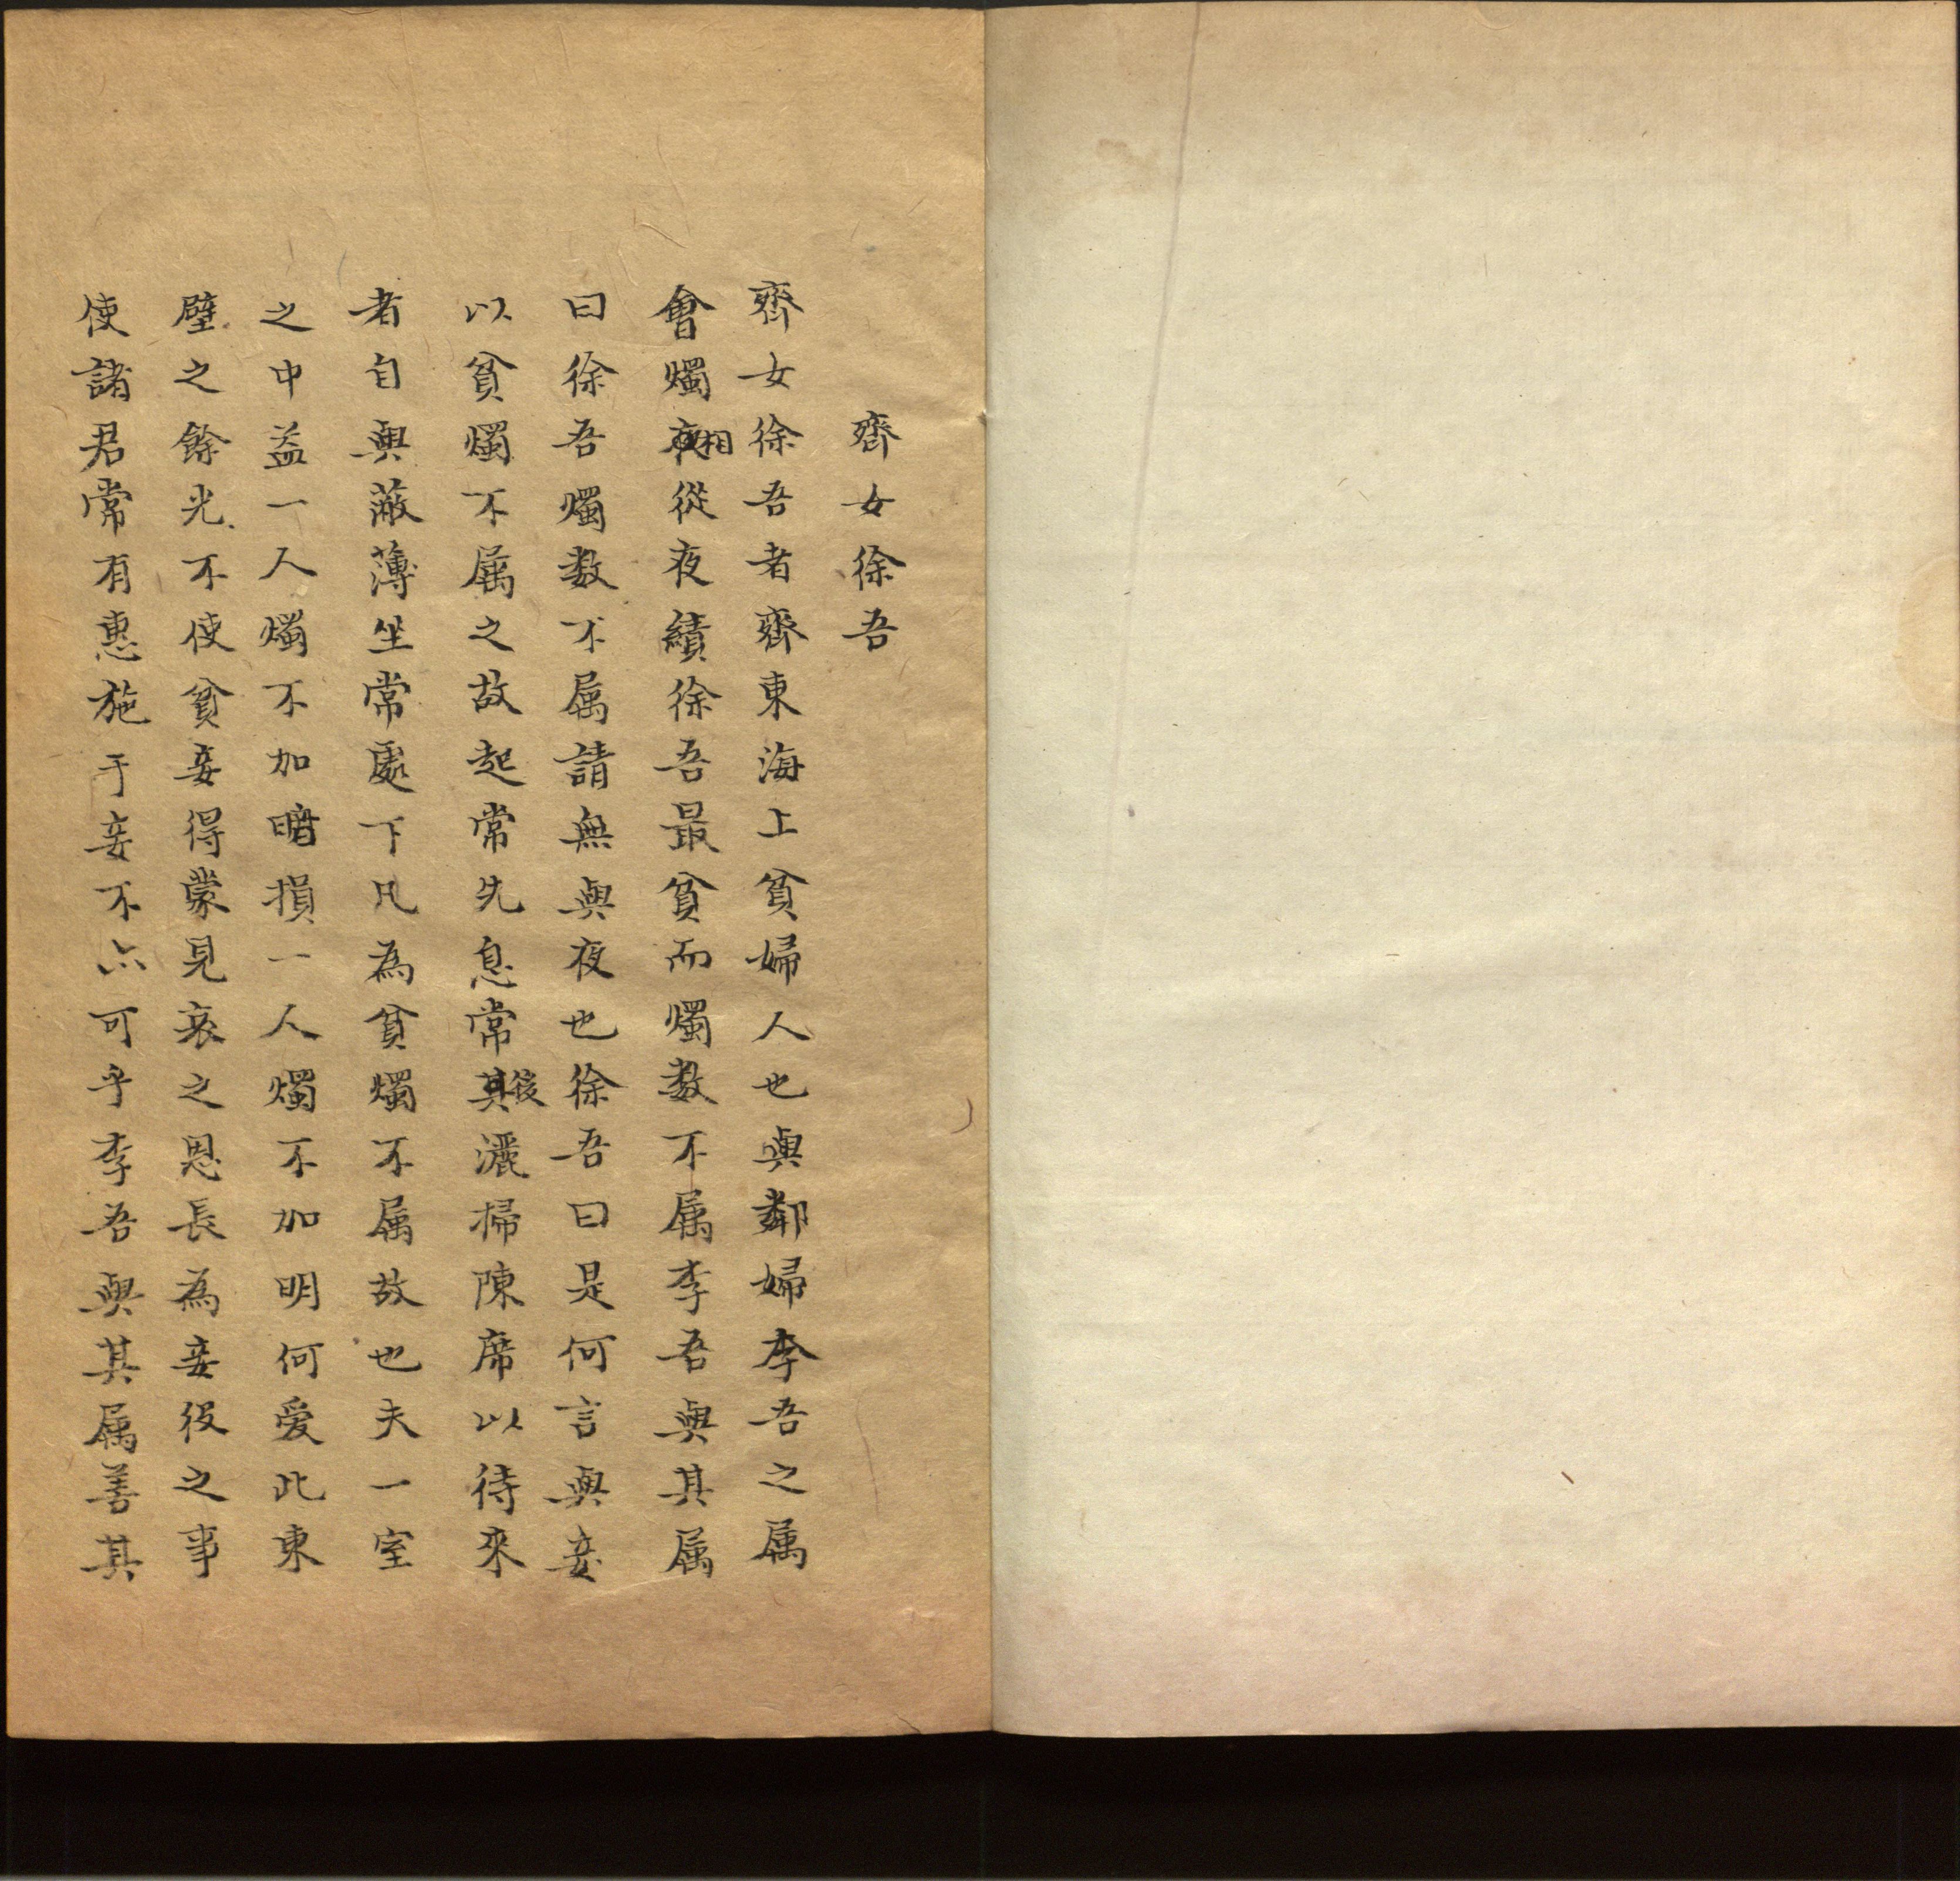 齊女徐吾
齊女徐吾者齊東海上貧婦人也與鄰婦李吾之属
會燭相從夜績徐吾最貧而燭数不属李吾與其属
曰徐吾燭数不属請無與夜也徐吾曰是何言與妾
以貧燭不属之故起常先息常後灑掃陳席以待來
者自與蔽薄坐常處下凡為貧燭不属故也夫一室
之中益一人燭不加暗損一人燭不加明何愛此東
壁之餘光不使貧妾得蒙見哀之恩長為妾役之事
使諸君常有惠施于妾不亦可乎李吾與其属善其